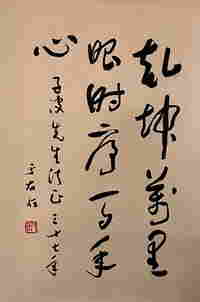 乾坤萬里
眼時序百年
心
子波先生法正三十七年
于右任